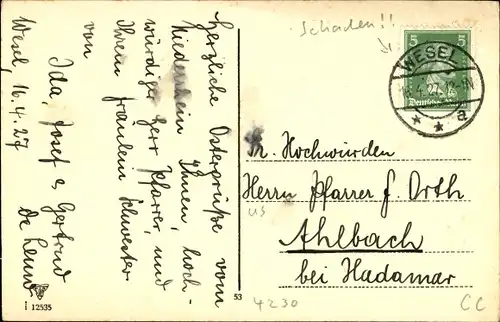 Herzliche Ostergrüße vom
Niederrhein Ihnen, hoch-
würdiger Herr Pfarrer, und
Ihrem Fräulein Schwester
von
Ida, Josef & Gertrud
Wesel, 16.4.27
Schaden!!
5 5
WESEL
4.27.12
Deutsches Reich
* * a
Sr. Hochwürden
Herrn Pfarrer F. Orth
Ahlbach
bei Hadamar
i 12535
53
4230
CC